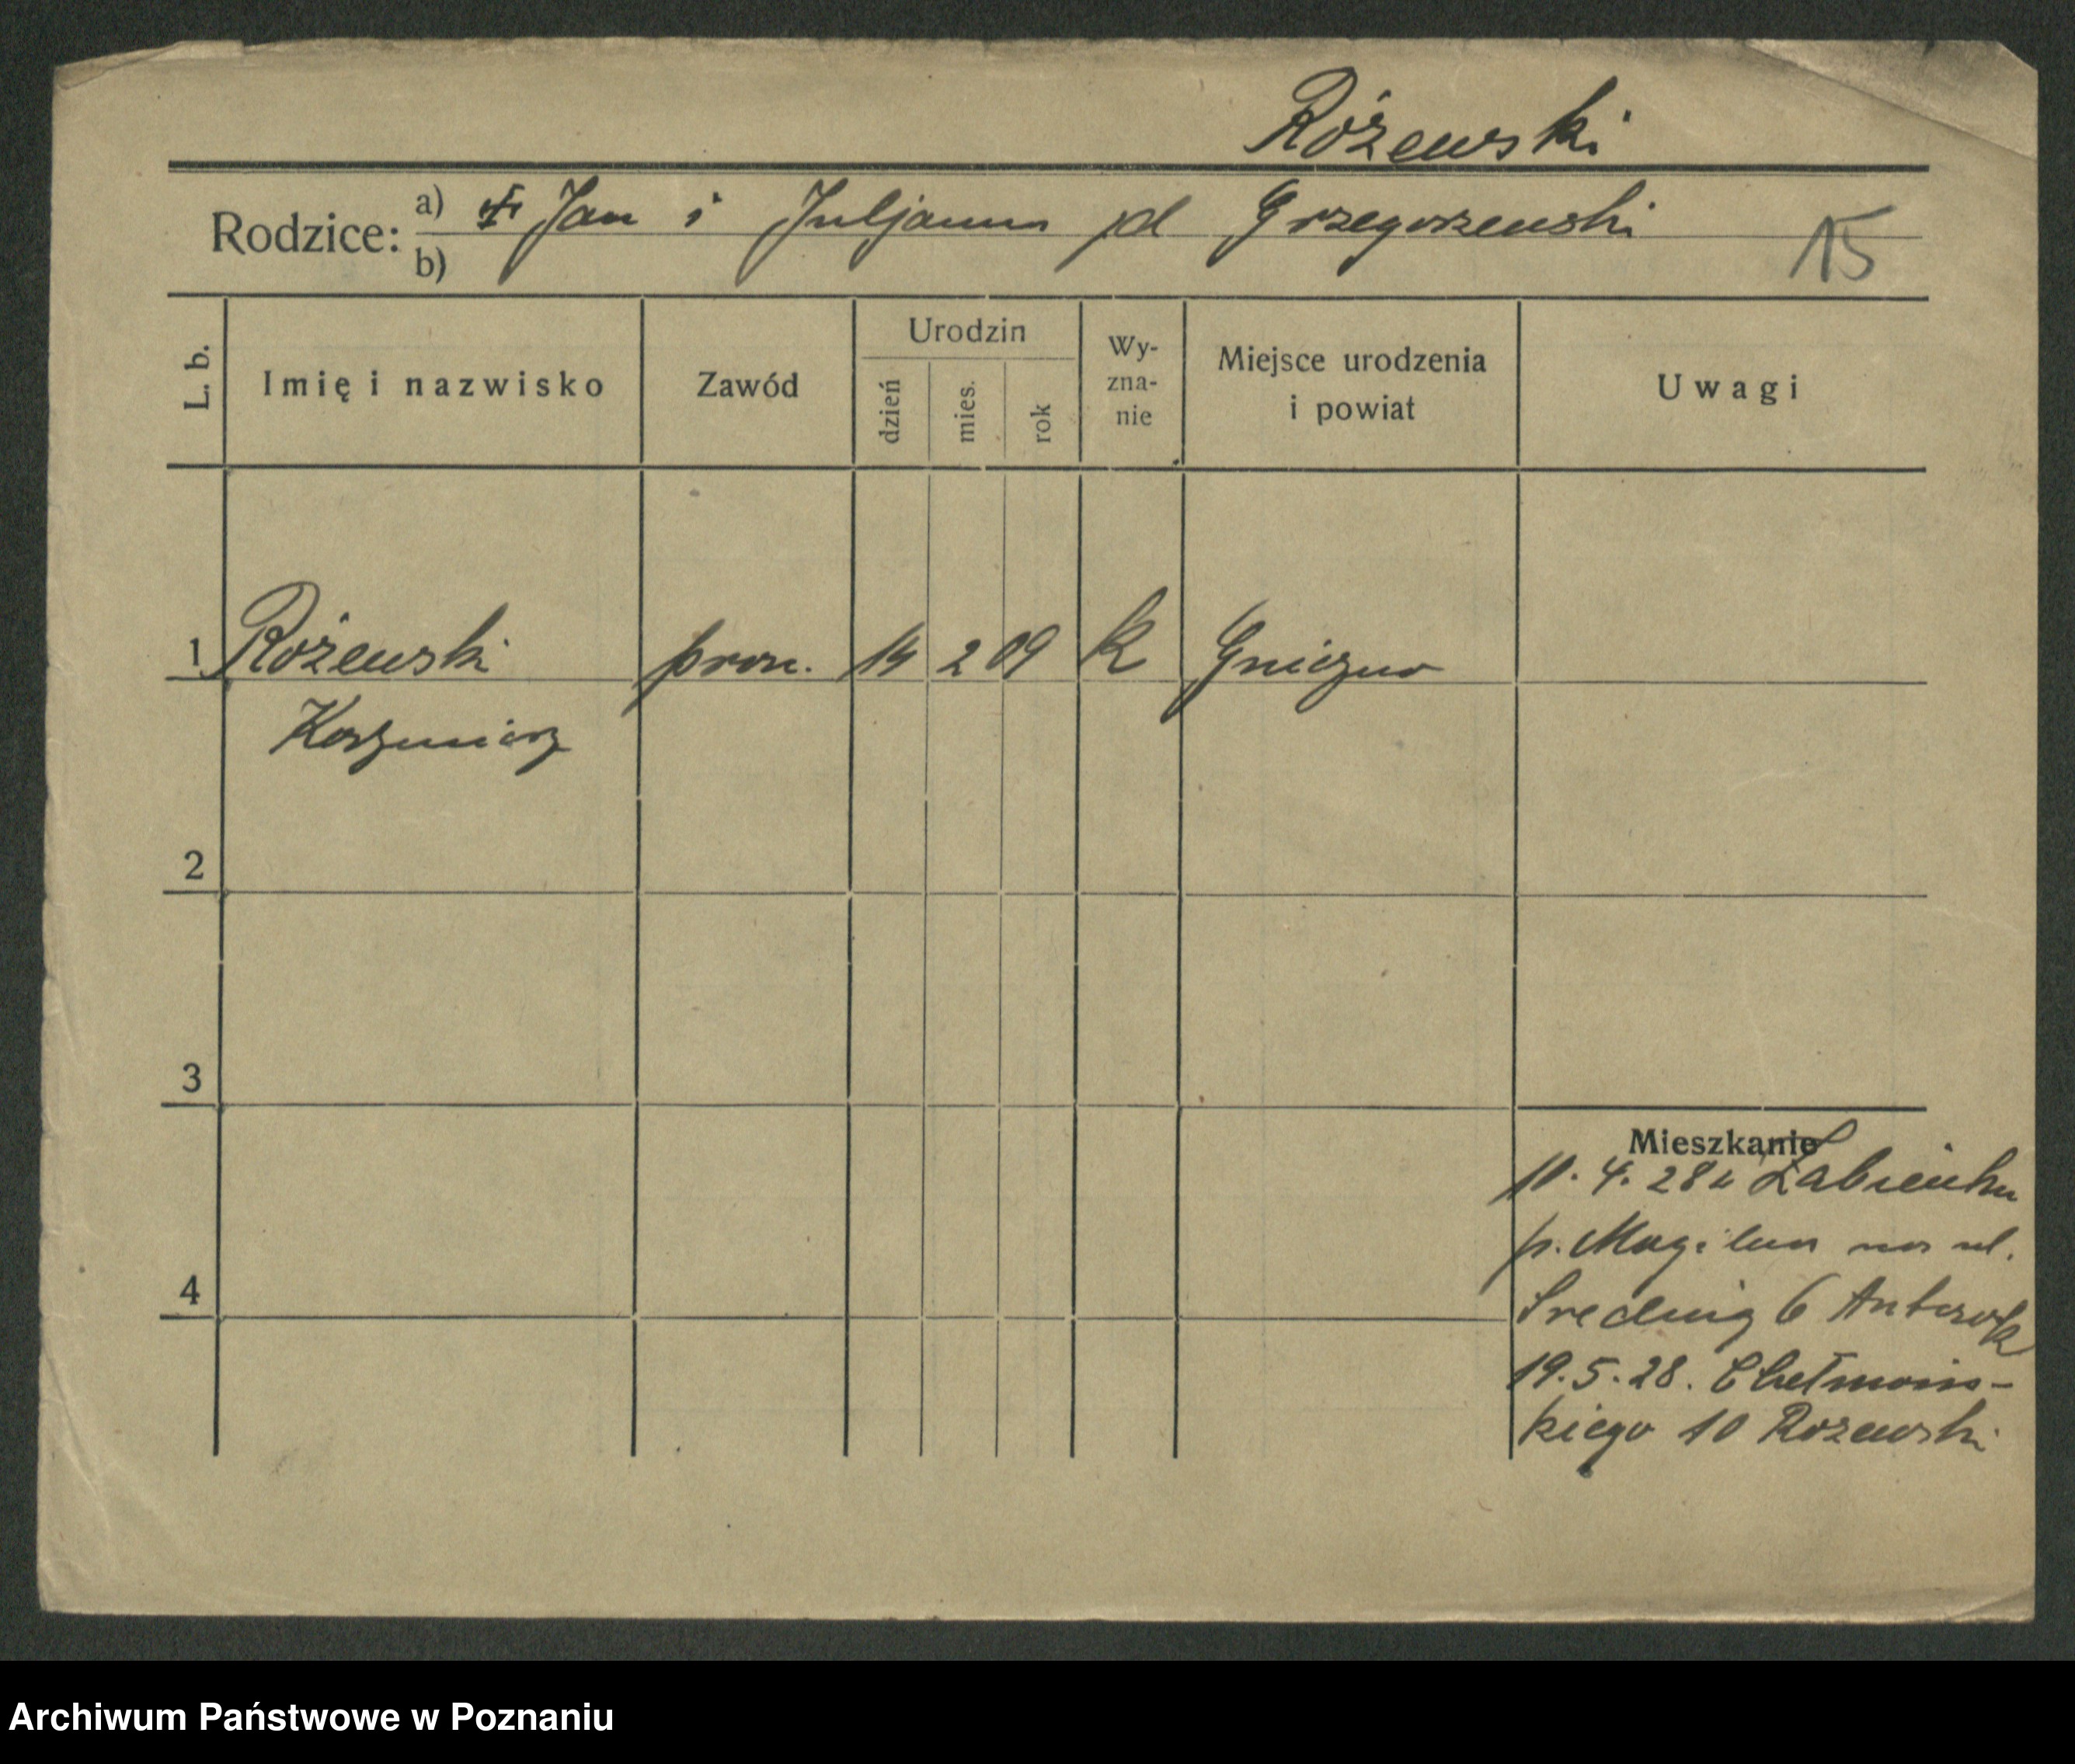 Różewski
Rodzice: a) Jan i Juljanna pd Grzegorzewski
b)
15
L. b.
Imię i nazwisko
Zawód
Urodzin
dzień
mies.
rok
Wy-
zna-
nie
Miejsce urodzenia
i powiat
Uwagi
1 Różewski prac. 14 2 09 K Gniezno
Kazimierz
2
3
4
Mieszkanie
10. 4. 28 z Żabienka
p. Mogilno na ul.
Srednią 6 Antczak
19. 5. 28. Chełmońs-
kiego 10 Rożewski
Archiwum Państwowe w Poznaniu